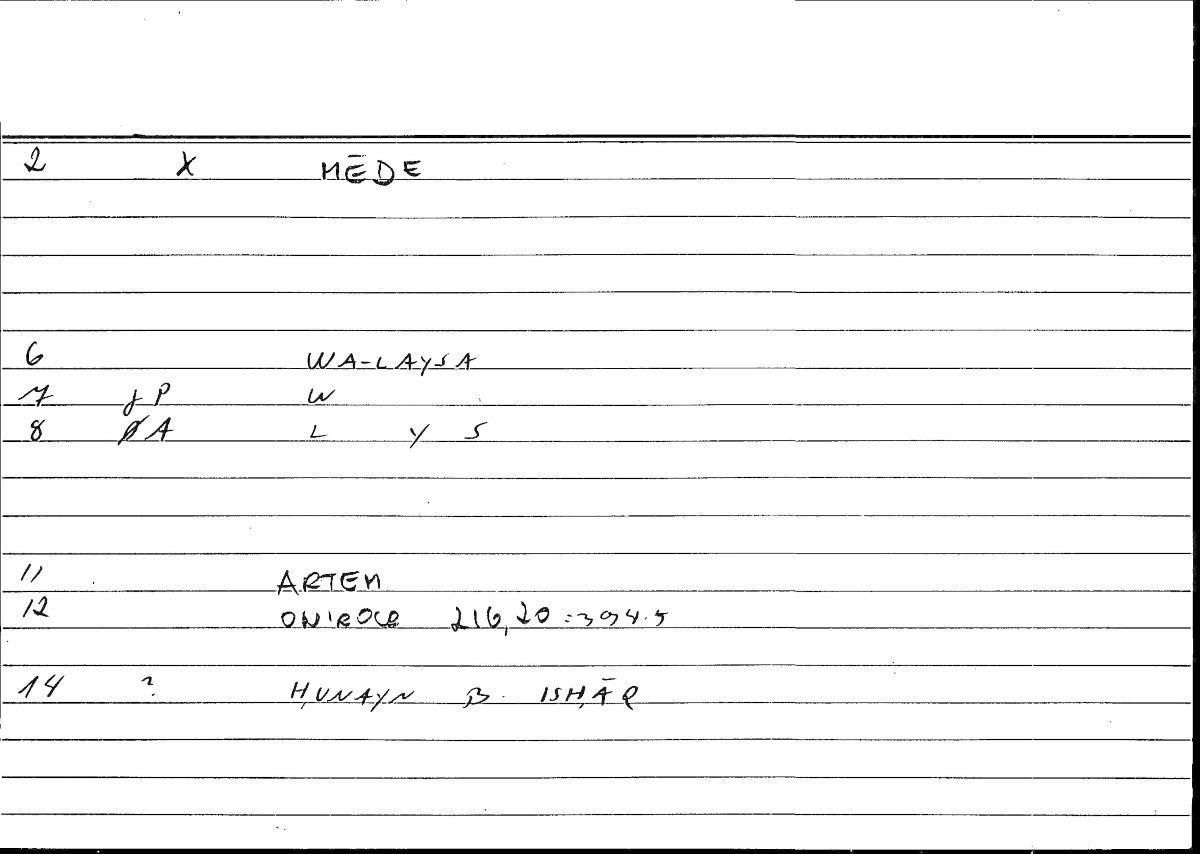 2 X MĒDE
6 WA-LAYSA
7 JP W
8 ØA L Y S
11 ARTEM
12 ONIROCR 216,20 = 394.5
14 ? ḤUNAYN B. ISḤĀQ